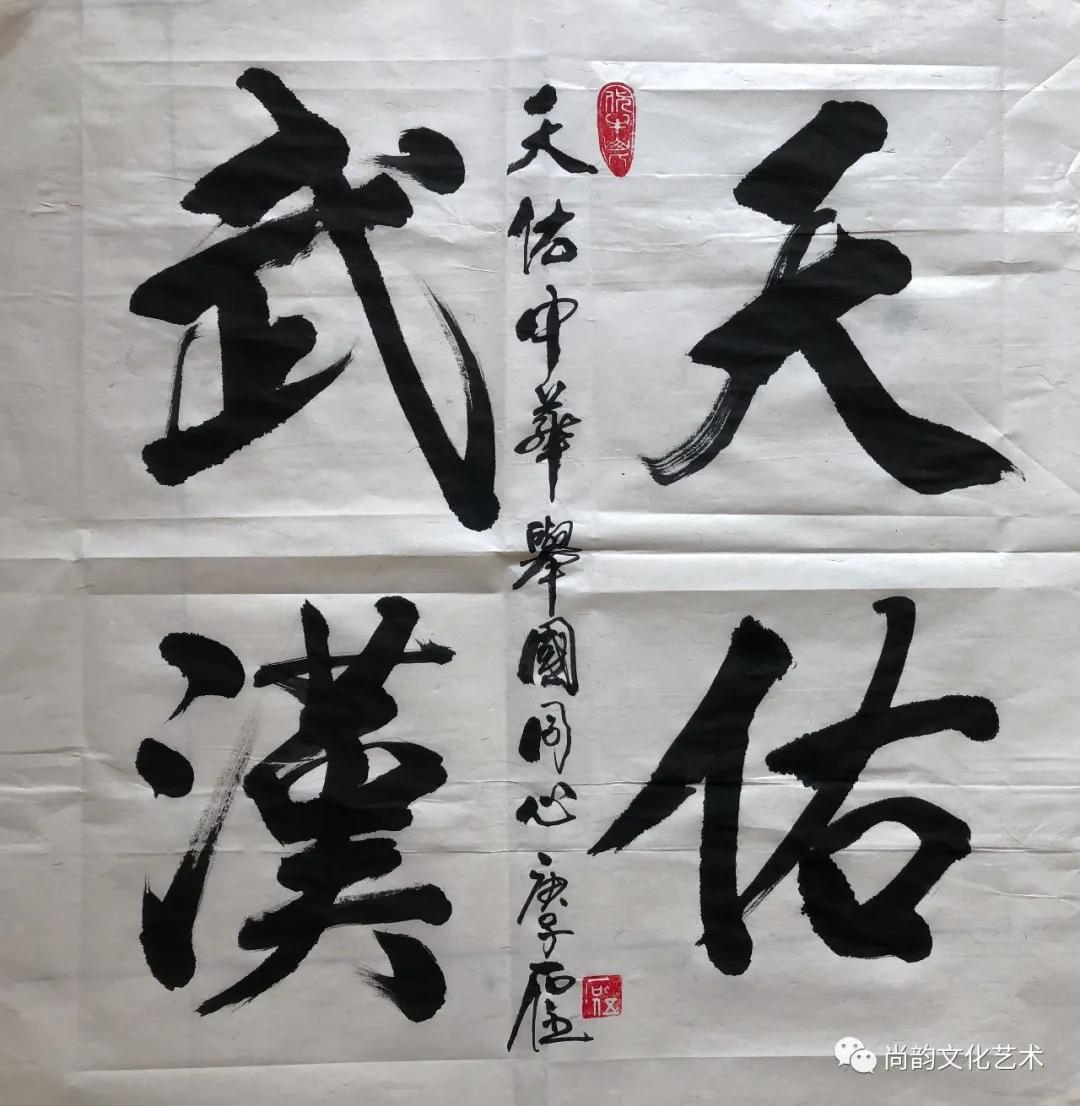 天佑
武漢
天佑中華舉國同心庚子
尚韵文化艺术